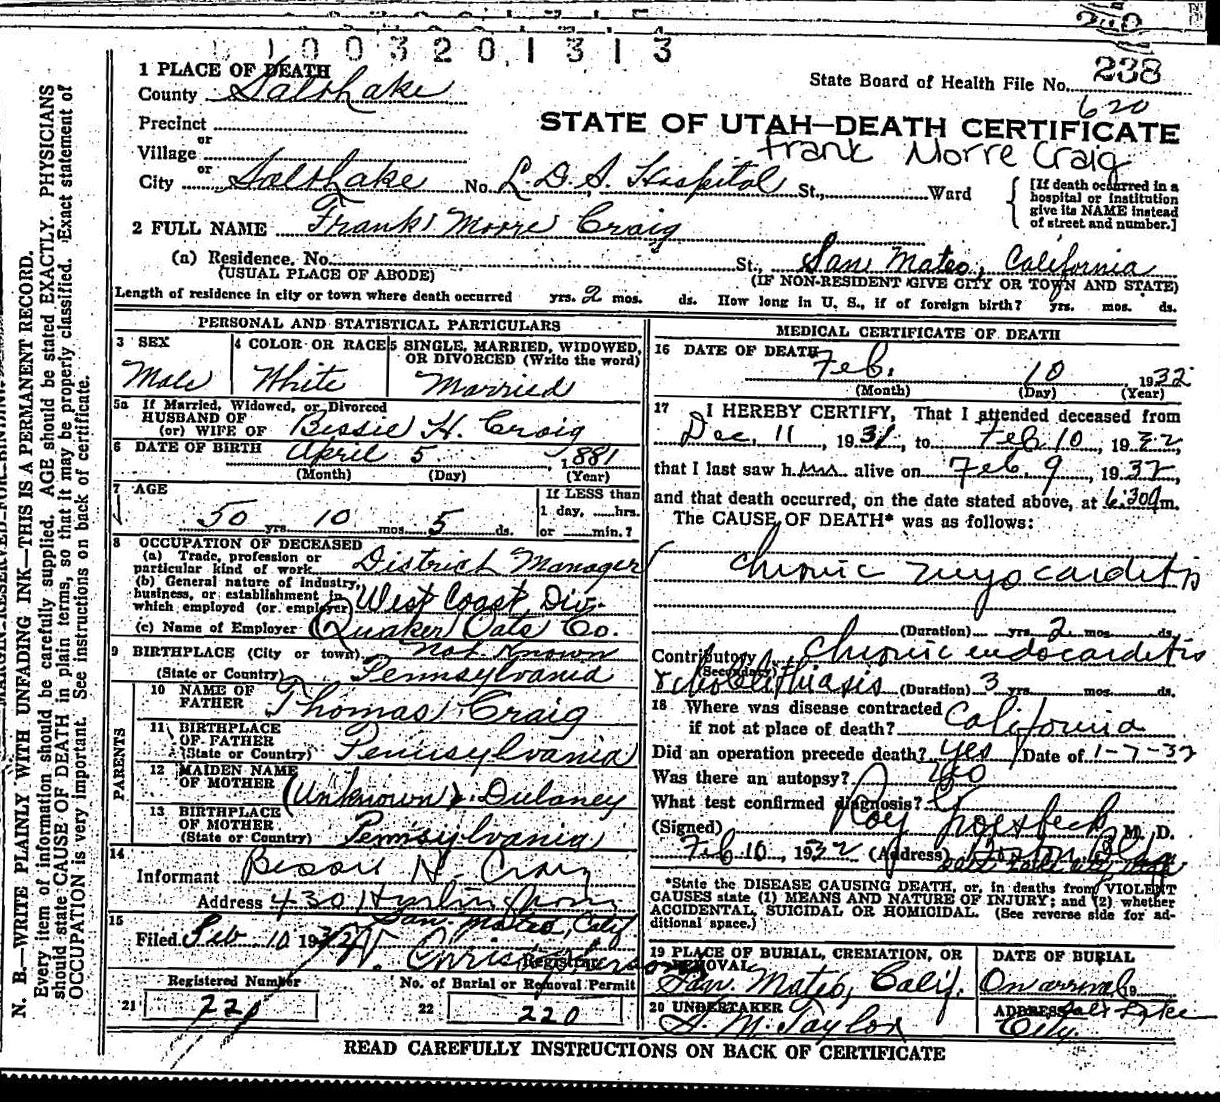 003201313
238
State Board of Health File No.
620
1 PLACE OF DEATH
County Salt Lake
Precinct
or
Village
or
City Salt Lake No. L. D. S. Hospital St., Ward
STATE OF UTAH—DEATH CERTIFICATE
Frank Morre Craig
[If death occurred in a
hospital or institution
give its NAME instead
of street and number.]
2 FULL NAME Frank Moore Craig
(a) Residence. No. St., San Mateo, California
(USUAL PLACE OF ABODE) (IF NON-RESIDENT GIVE CITY OR TOWN AND STATE)
Length of residence in city or town where death occurred yrs. 2 mos. ds. How long in U. S., if of foreign birth? yrs. mos. ds.
PERSONAL AND STATISTICAL PARTICULARS
3 SEX
Male
4 COLOR OR RACE
White
5 SINGLE, MARRIED, WIDOWED,
OR DIVORCED (Write the word)
Married
5a If Married, Widowed, or Divorced
HUSBAND OF
(or) WIFE OF Bessie H. Craig
6 DATE OF BIRTH April 5, 1881
(Month) (Day) (Year)
7 AGE
50 yrs. 10 mos. 5 ds.
If LESS than
1 day, hrs.
or min.?
8 OCCUPATION OF DECEASED
(a) Trade, profession or
particular kind of work District Manager
(b) General nature of industry,
business, or establishment in
which employed (or employer) West Coast Div.
(c) Name of Employer Quaker Oats Co.
9 BIRTHPLACE (City or town) not Known
(State or Country) Pennsylvania
PARENTS
10 NAME OF
FATHER Thomas Craig
11 BIRTHPLACE
OF FATHER
(State or Country) Pennsylvania
12 MAIDEN NAME
OF MOTHER (Unknown) Dulaney
13 BIRTHPLACE
OF MOTHER
(State or Country) Pennsylvania
14
Informant Bessie H. Craig
Address 430 Hurlingham
San Mateo, Calif
15
Filed Feb 10 1932 Registrar
Registered Number
21 220
No. of Burial or Removal Permit
22 220
MEDICAL CERTIFICATE OF DEATH
16 DATE OF DEATH
Feb. 10 1932
(Month) (Day) (Year)
17 I HEREBY CERTIFY, That I attended deceased from
Dec. 11, 1931, to Feb 10, 1932,
that I last saw him alive on Feb. 9, 1932,
and that death occurred, on the date stated above, at 6:30am.
The CAUSE OF DEATH* was as follows:
Chronic myocarditis
(Duration) yrs. 2 mos. ds.
Contributory Chronic endocarditis
(Secondary)
& cholelithiasis (Duration) 3 yrs. mos. ds.
18 Where was disease contracted
if not at place of death? California
Did an operation precede death? yes Date of 1-7-32
Was there an autopsy? no
What test confirmed diagnosis?
(Signed) Roy Groesbeck M. D.
Feb 10, 1932 (Address) Boston Bldg
*State the DISEASE CAUSING DEATH, or, in deaths from VIOLENT
CAUSES state (1) MEANS AND NATURE OF INJURY; and (2) whether
ACCIDENTAL, SUICIDAL OR HOMICIDAL. (See reverse side for ad-
ditional space.)
19 PLACE OF BURIAL, CREMATION, OR
REMOVAL
San Mateo, Calif.
DATE OF BURIAL
On arrival 19
20 UNDERTAKER
S. M. Taylor
ADDRESS Salt Lake
City
READ CAREFULLY INSTRUCTIONS ON BACK OF CERTIFICATE
MARGIN RESERVED FOR BINDING
N. B.—WRITE PLAINLY WITH UNFADING INK—THIS IS A PERMANENT RECORD.
Every item of information should be carefully supplied. AGE should be stated EXACTLY. PHYSICIANS
should state CAUSE OF DEATH in plain terms, so that it may be properly classified. Exact statement of
OCCUPATION is very important. See instructions on back of certificate.